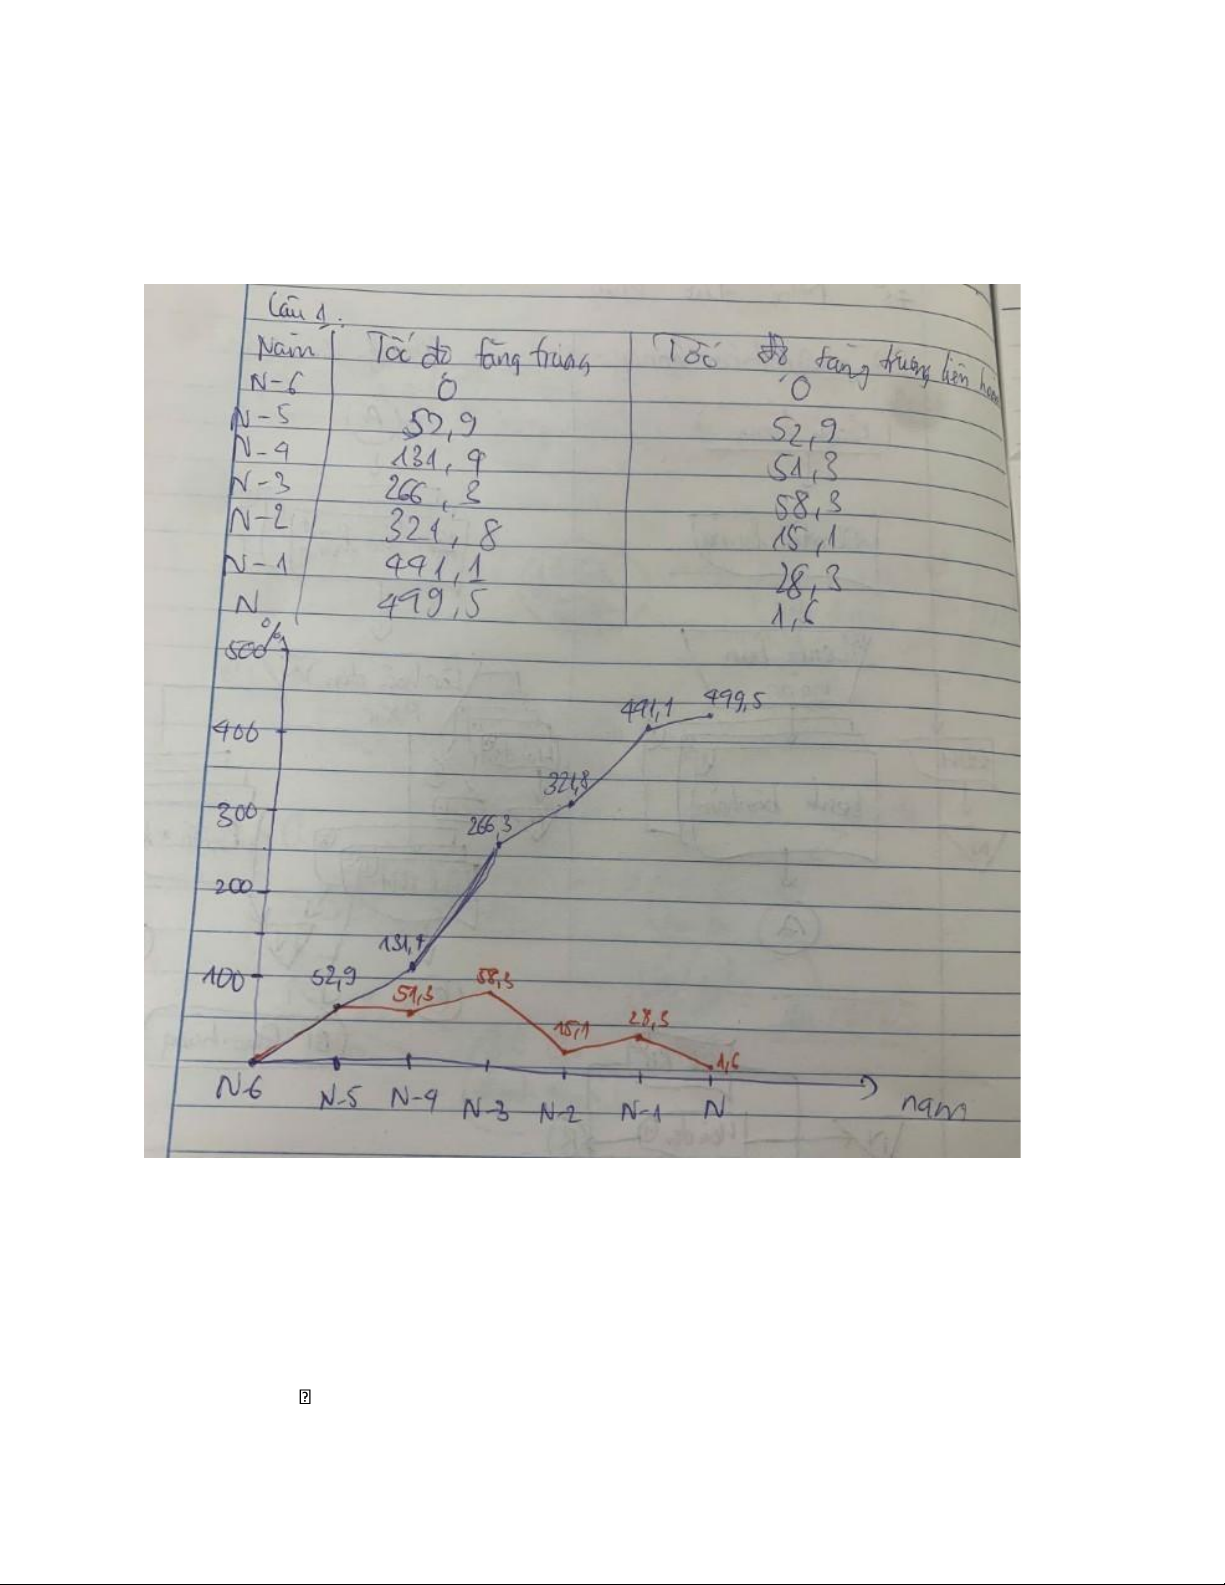 Câu 1:
Năm Tốc độ tăng trưởng Tốc độ tăng trưởng liên hoàn
N-6 0 0
N-5 52,9 52,9
N-4 131,4 51,3
N-3 266,3 58,3
N-2 321,8 15,1
N-1 441,1 28,3
N 449,5 1,6
%
500
441,1 449,5
400
321,8
300
266,3
200
131,4
100 52,9 51,3 58,3 15,1 28,3 1,6
N-6 N-5 N-4 N-3 N-2 N-1 N năm